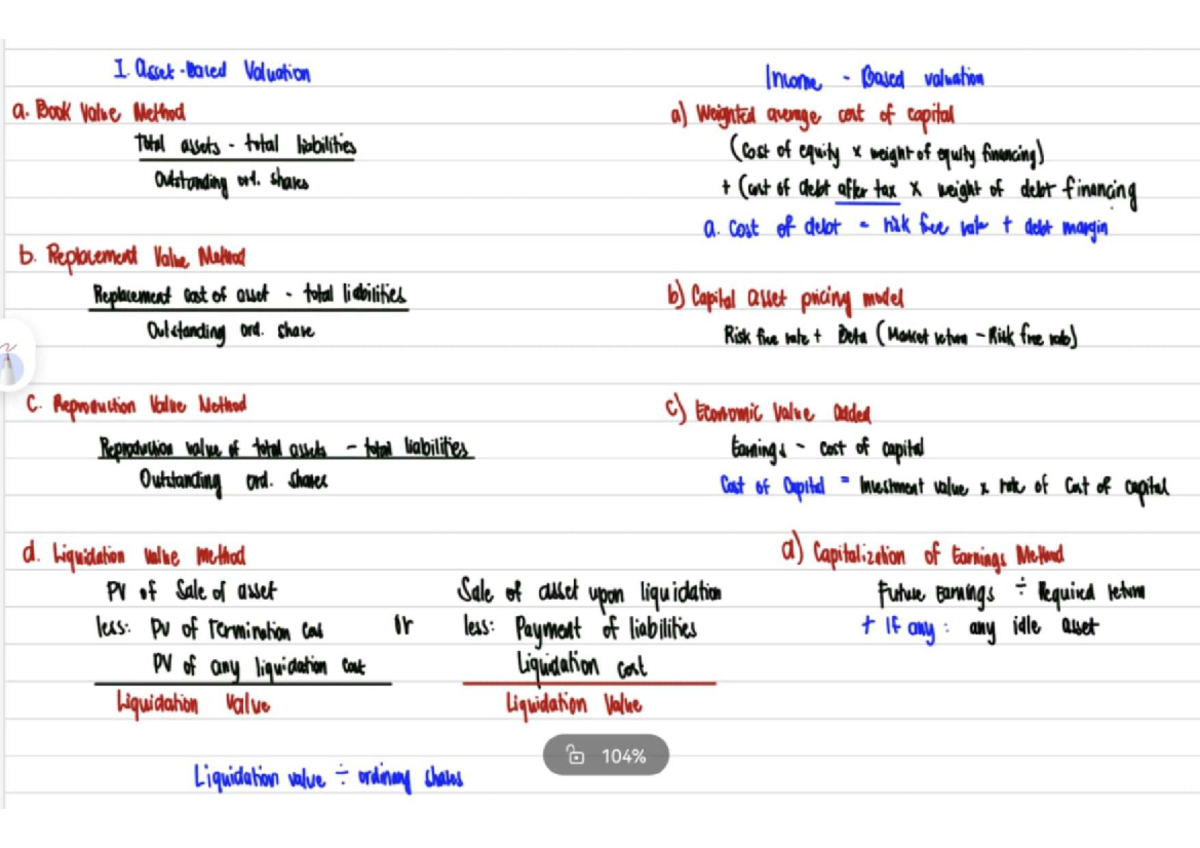 I. Asset-Based Valuation
a. Book Value Method
Total assets - total liabilities
Outstanding ord. shares
b. Replacement Value Method
Replacement cost of asset - total liabilities
Outstanding ord. share
c. Reproduction Value Method
Reproduction value of total assets - total liabilities
Outstanding ord. shares
d. Liquidation value method
PV of Sale of asset
less: PV of Termination Cost
PV of any liquidation cost
Liquidation Value
or
Sale of asset upon liquidation
less: Payment of liabilities
Liquidation cost
Liquidation Value
Liquidation value ÷ ordinary shares
Income - Based valuation
a) Weighted average cost of capital
(Cost of equity x weight of equity financing)
+ (Cost of debt after tax x weight of debt financing
a. Cost of debt = risk free rate + debt margin
b) Capital asset pricing model
Risk free rate + Beta (Market return - Risk free rate)
c) Economic Value Added
Earnings - cost of capital
Cost of Capital = Investment value x rate of Cost of capital
d) Capitalization of Earnings Method
Future Earnings ÷ Required return
+ If any: any idle asset
104%